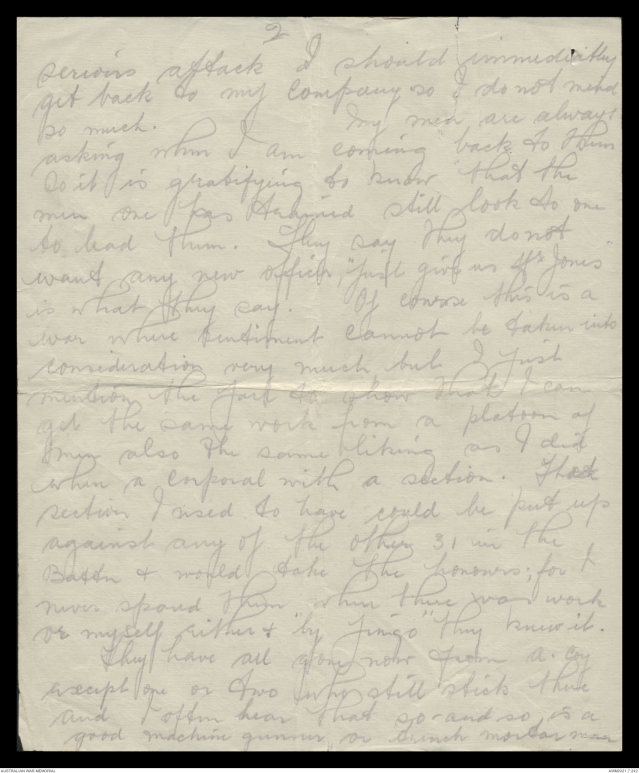 2
serious attack I should immediatly
get back to my company so I do not mind
so much. My men are always
asking when I am coming back to them
so it is gratifying to know that the
men one has trained still look to one
to lead them. They say they do not
want any new officer, "just give us Mr Jones"
is what they say. Of course this is a
war where sentiment cannot be taken into
consideration very much but I just
mention the fact to show that I can
get the same work from a platoon of
men also the same liking as I did
when a corporal with a section. That
section I used to have could be put up
against any of the other 31 in the
Battn & would take the honours; for I
never spared them when there was work
or myself either & "by Jingo" they knew it.
They have all gone now from a coy
except one or two who still stick there
and I often hear that so-and-so is a
good machine gunner or trench mortar man
AUSTRALIAN WAR MEMORIAL